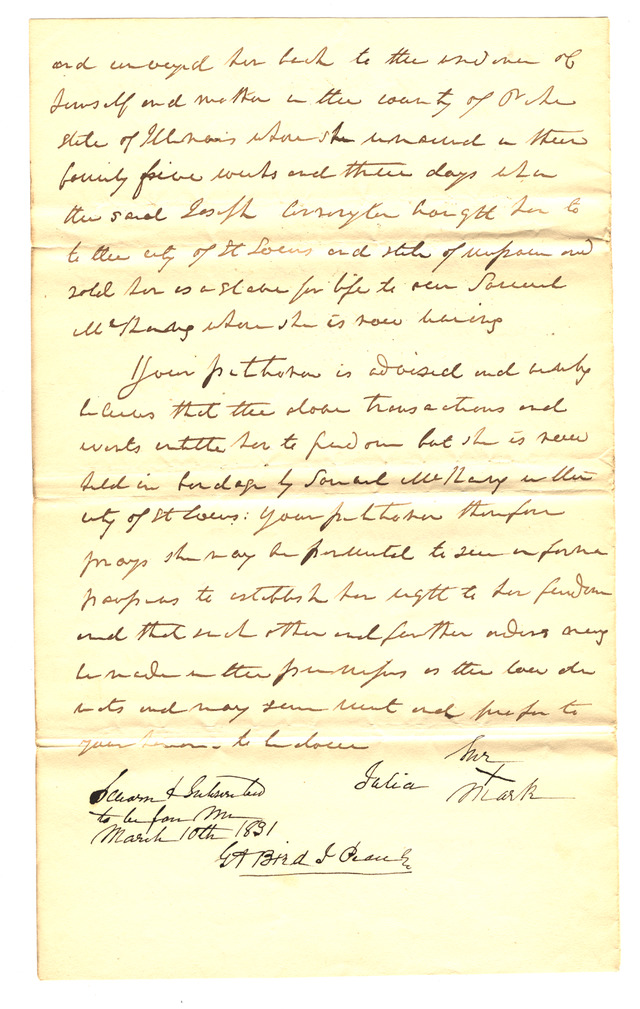 and conveyed her back to the
himself and mother in the county of Pike
State of Illinois where she remained in their
family five weeks and three days when
the said Joseph brought her to
to the city of St Louis and state of Missouri and
sold her as a Slave for life to one Samuel
McKinney where she is now living
Your petitioner is advised and verily
believes that the above transactions and
entitle her to freedom but she is now
held in bondage by Samuel McKinney in the
city of St Louis: Your petitioner therefore
prays she may be permitted to sue in forma
pauperis to establish her right to her freedom
and that such other and further orders may
be made in the premises as the law di-
rects and may seem meet and proper to
your honor to be done
her
Julia X
Mark
Sworn & Subscribed
to be fore Me
March 10th 1831
Bird J Peace